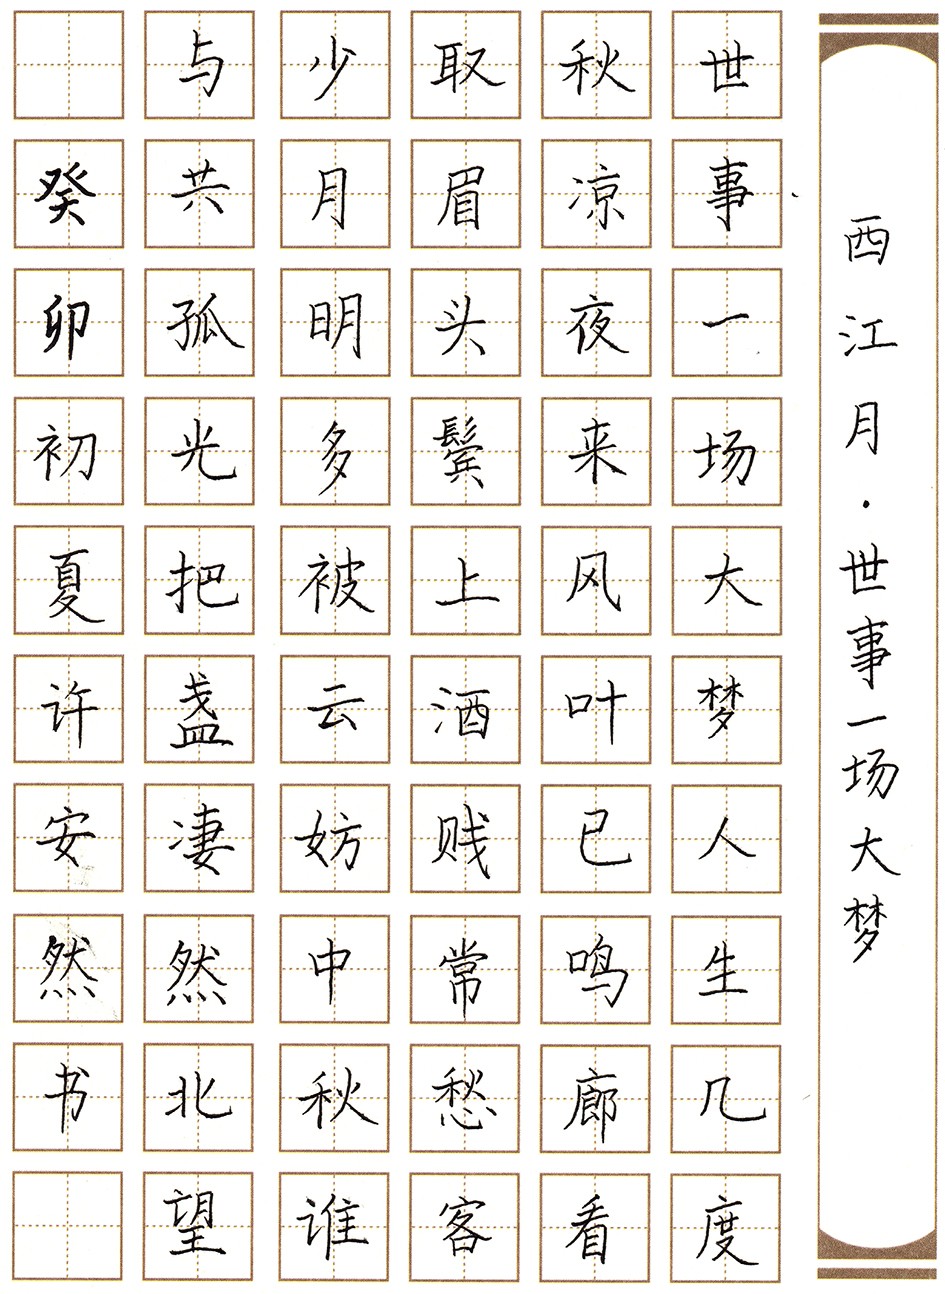 西江月·世事一场大梦
世事一场大梦人生几度
秋凉夜来风叶已鸣廊看
取眉头鬓上酒贱常愁客
少月明多被云妨中秋谁
与共孤光把盏凄然北望
癸卯初夏许安然书